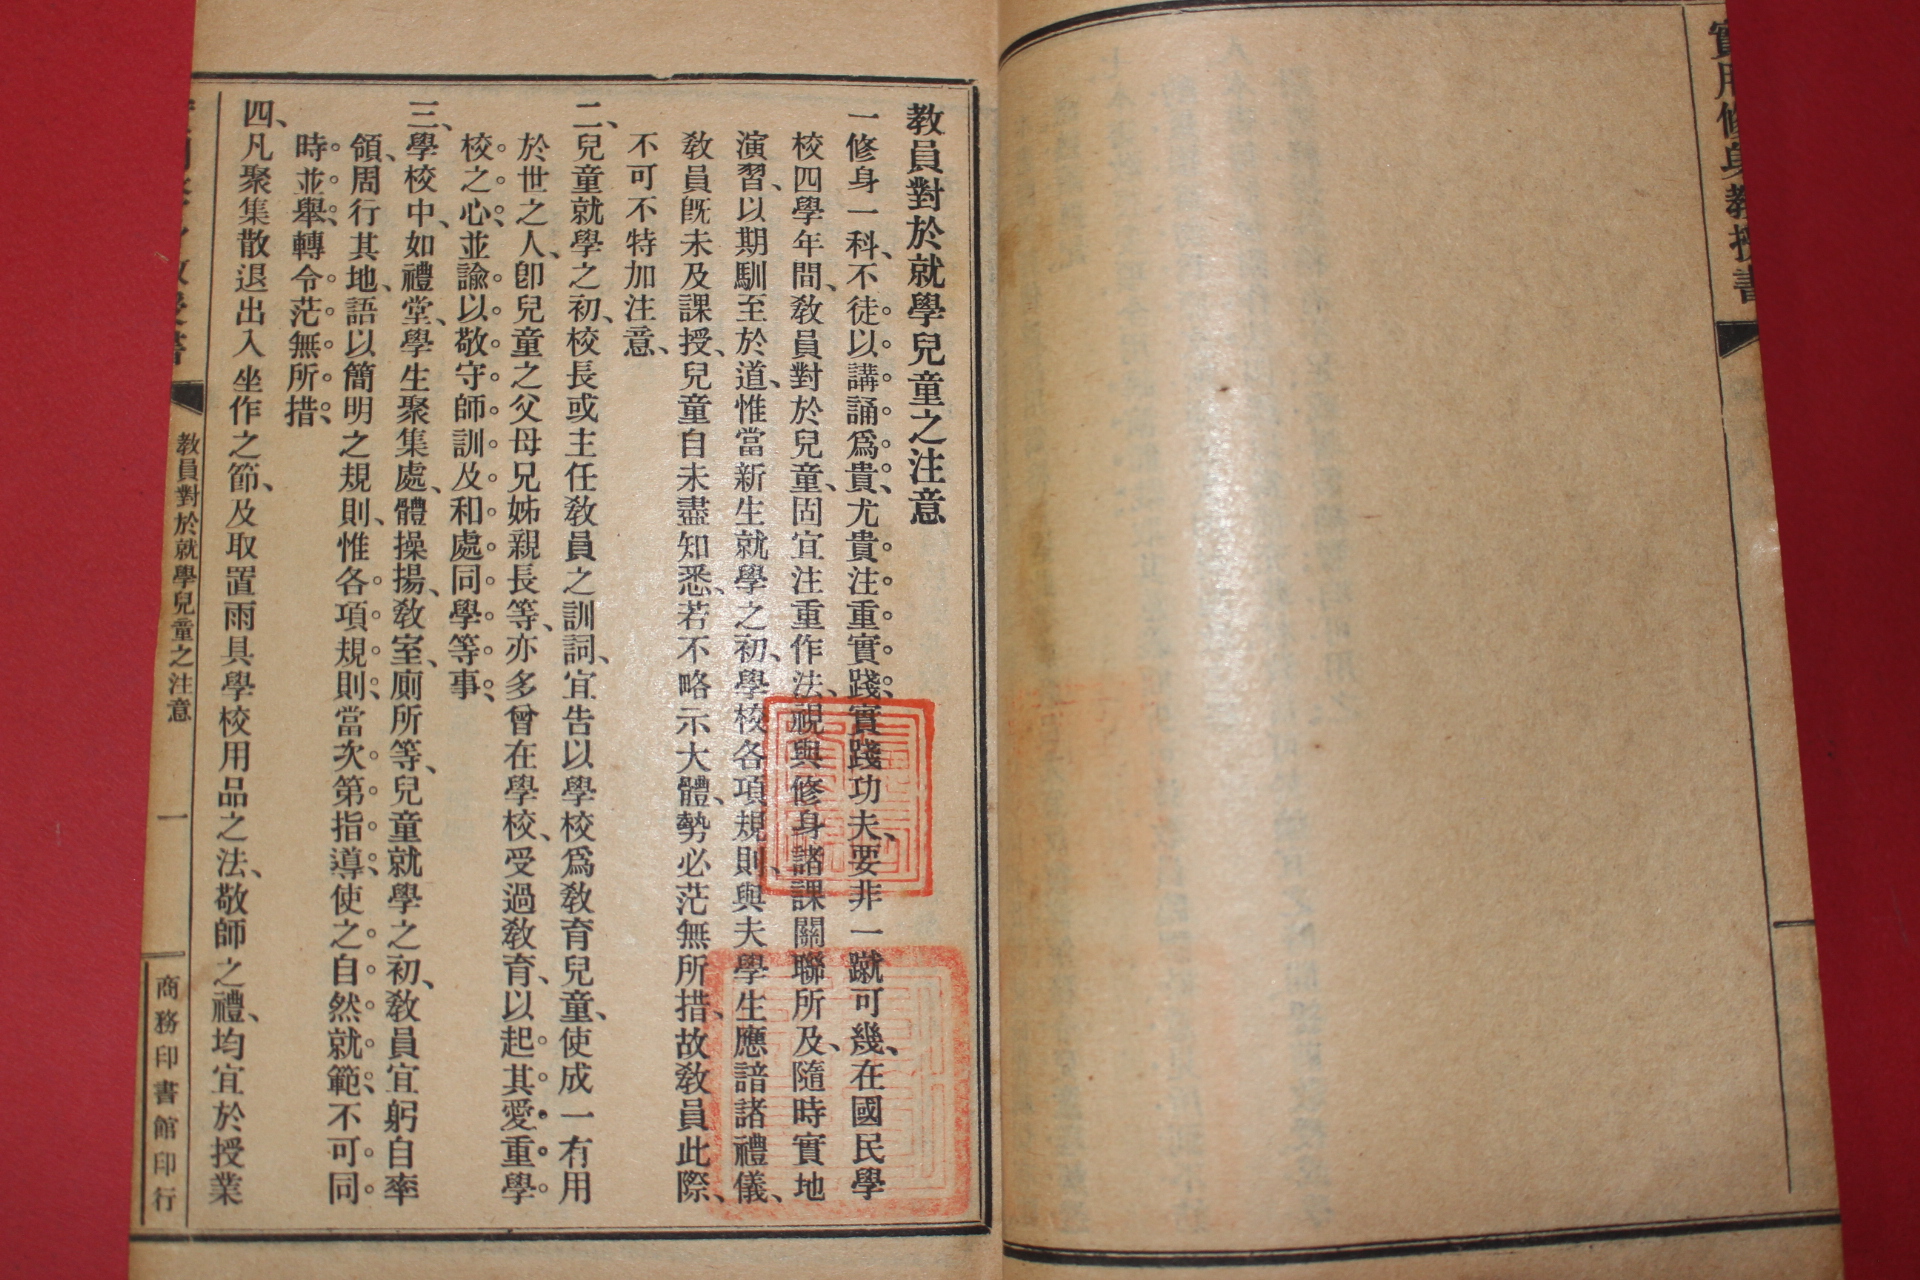 實用修身教授書
教員對於就學兒童之注意
一修身一科、不徒以講誦爲貴、尤貴注重實踐、實踐功夫、要非一蹴可幾、在國民學
校四學年間、敎員對於兒童、固宜注重作法、視與修身諸課關聯所及、隨時實地
演習、以期馴至於道、惟當新生就學之初、學校各項規則、與夫學生應諳諸禮儀、
敎員旣未及課授、兒童自未盡知悉、若不略示大體、勢必茫無所措、故敎員此際、
不可不特加注意、
二、兒童就學之初、校長或主任敎員之訓詞、宜告以學校爲敎育兒童、使成一有用
於世之人、卽兒童之父母兄姊親長等、亦多曾在學校、受過敎育、以起其愛重學
校之心、並諭以敬守師訓及和處同學等事、
三、學校中、如禮堂、學生聚集處、體操揚、敎室、廁所等、兒童就學之初、敎員宜躬自率
領、周行其地、語以簡明之規則、惟各項規則、當次第指導、使之自然就範、不可同
時並舉、轉令茫無所措、
四、凡聚集散退出入坐作之節、及取置雨具學校用品之法、敬師之禮、均宜於授業
教員對於就學兒童之注意
一
商務印書館印行